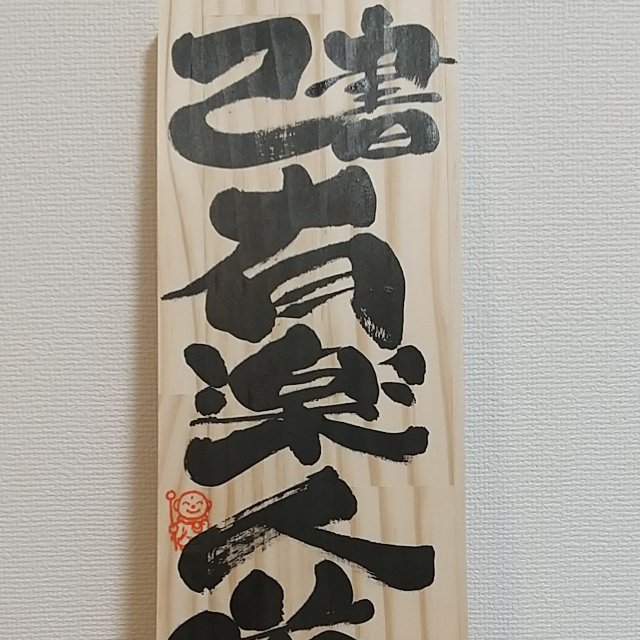 己書有楽人